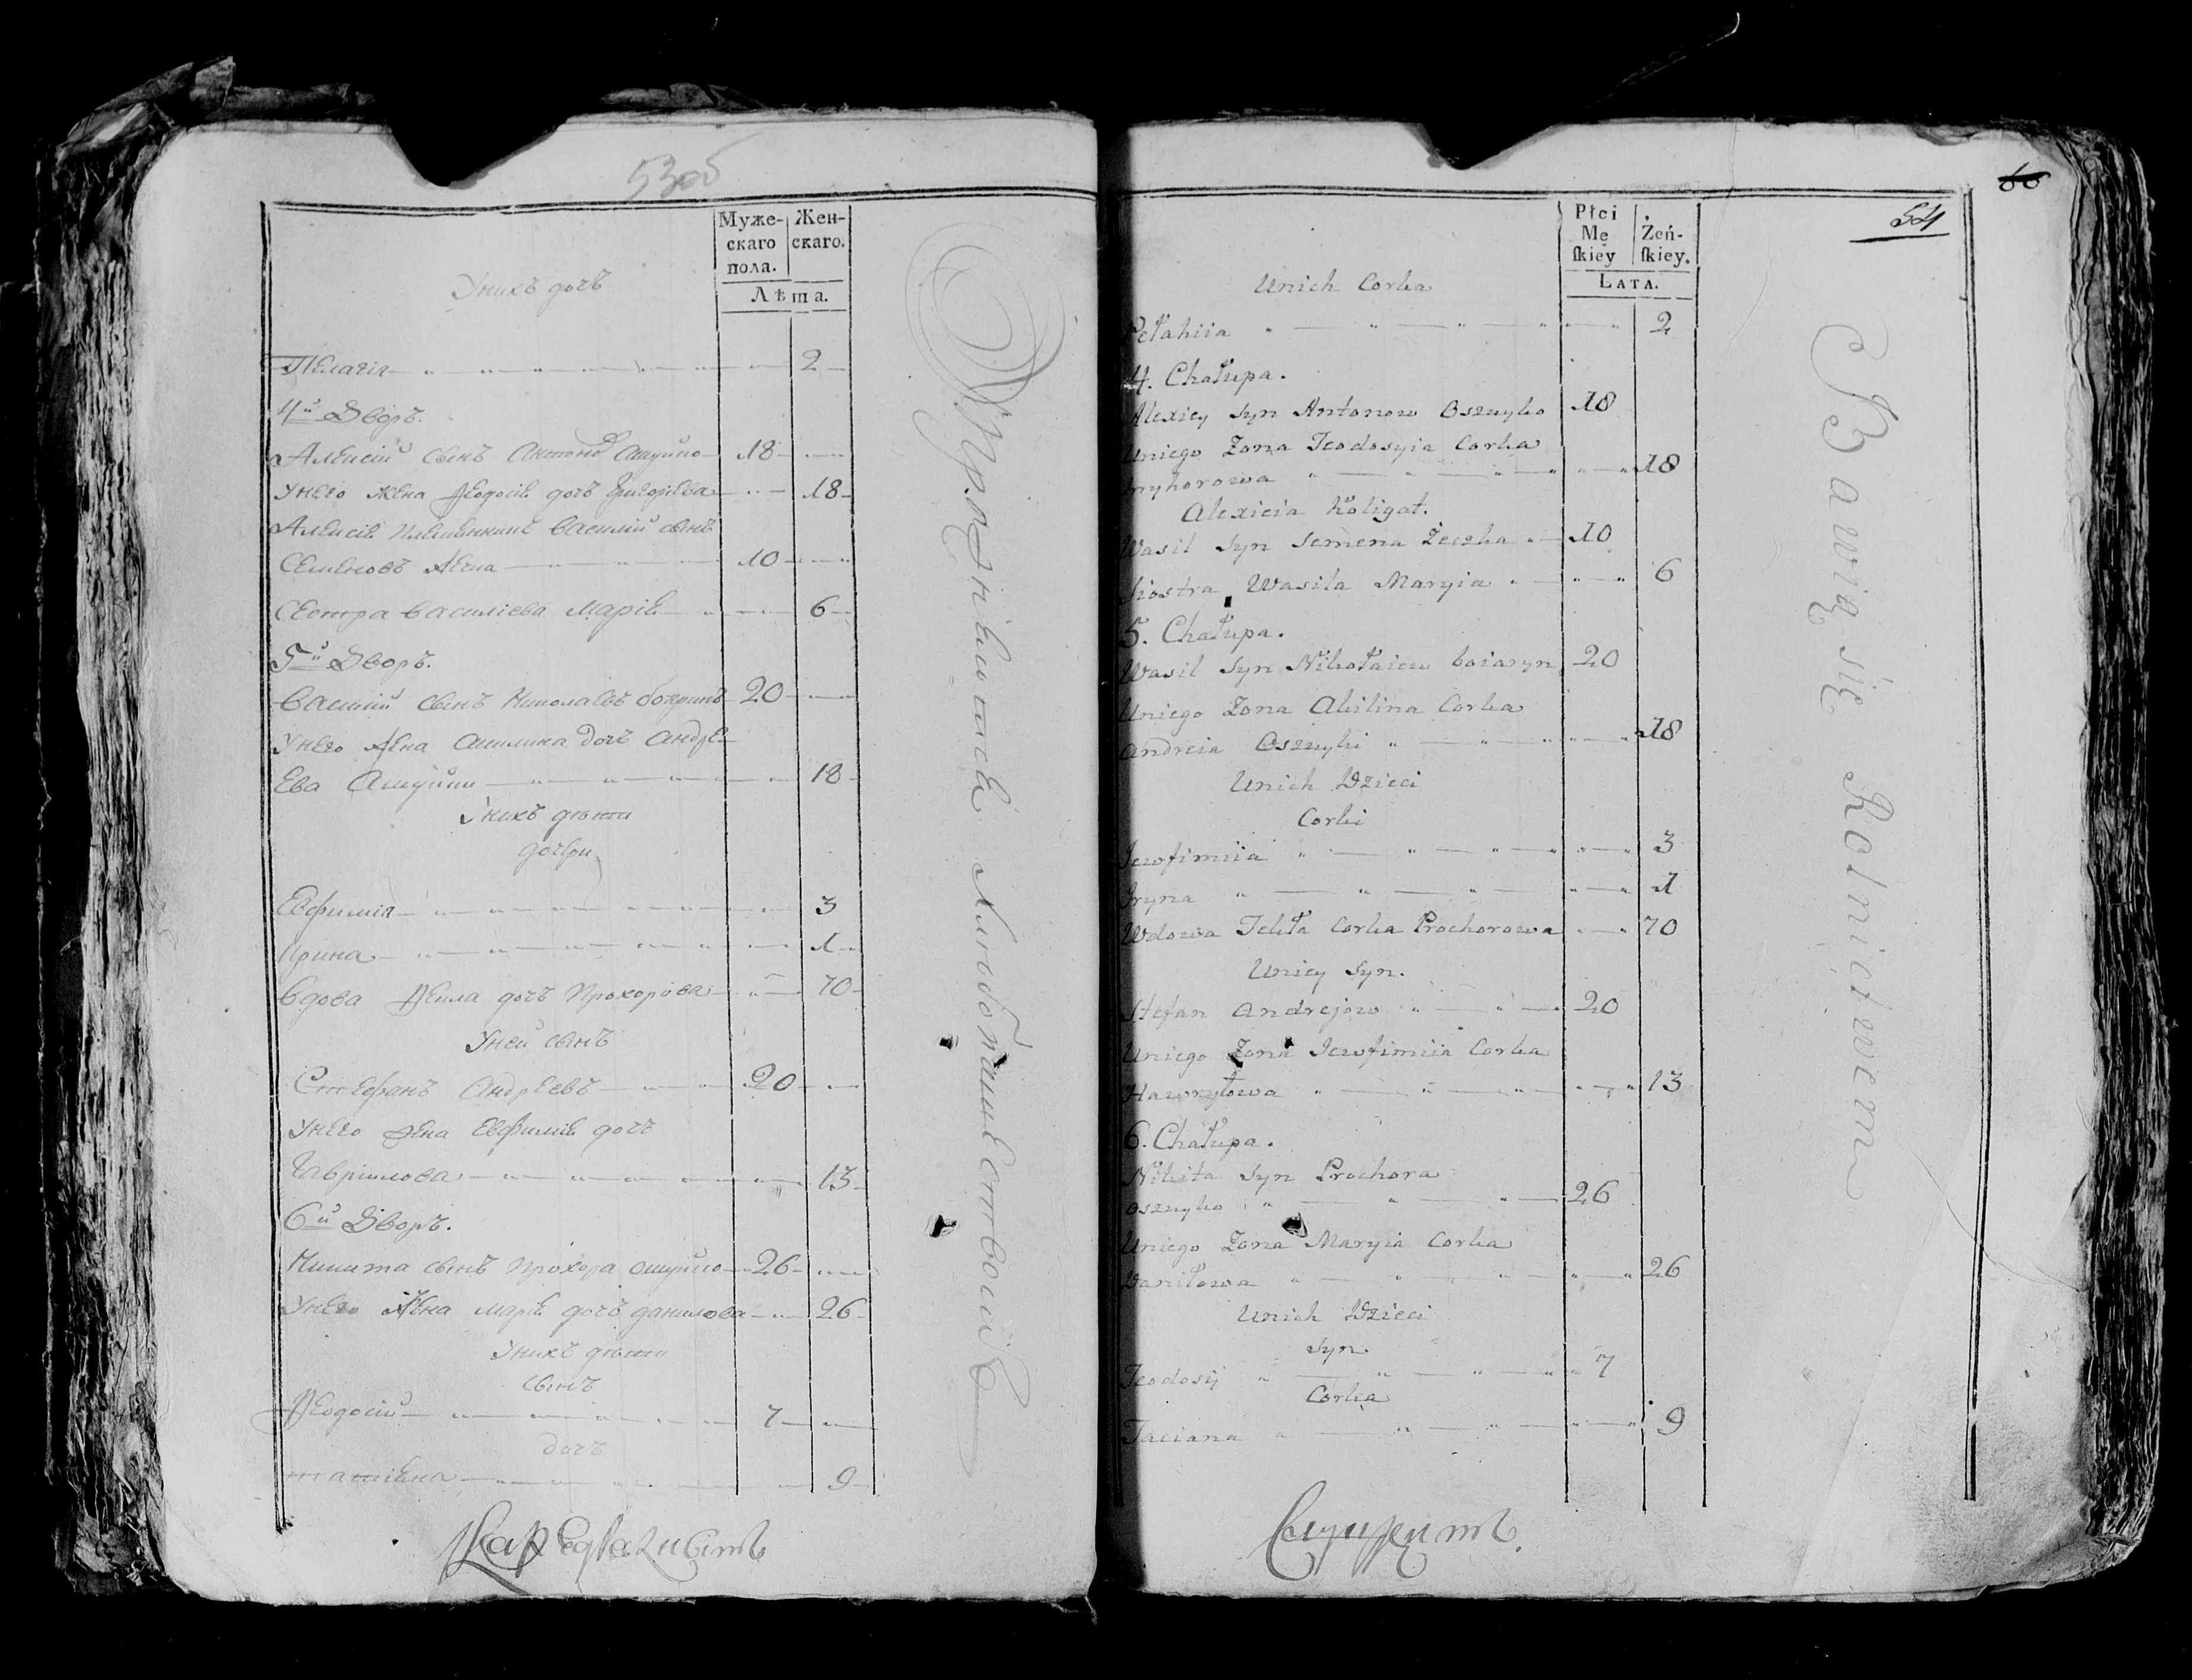 53об
Муже-
скаго
пола.
Жен-
скаго.
Лѣта.
Унихъ дочь
Пелагія 2
4й Дворъ.
Алексій сынъ Антоновъ Ошуйко 18
Унего жена Ѳеодосія дочь Григорьева 18
Алексія племянникъ Василій сынъ
Семеновъ 10
Сестра Василіева Марія 6
5й Дворъ.
Василій сынъ Николаевъ бояринъ 20
Унего жена Акилина дочь Андре-
ева Ошуйки 18
Унихъ дѣти
дочери
Евфимія 3
Ирина 1
Вдова Ѳекла дочь Прохорова 70
Уней сынъ
Стефанъ Андреевъ 20
Унего жена Евфимія дочь
Гаврилова 13
6й Дворъ.
Никита сынъ Прохора Ошуйко 26
Унего жена Марія дочь Данилова 26
Унихъ дѣти
сынъ
Ѳеодосій 7
дочь
татіана 9
Упражняются хлебопашествомъ
60
54
Płci
Mę
ſkiey
Żeń-
ſkiey.
LATA.
Unich Corka
Pełahiia 2
4. Chałupa.
Alexiey Syn Antonow Oszuyko 18
Uniego Zona Teodosyia Corka
Hryhorowa 18
Alexieia Koligat.
Wasil Syn Semena Zeczka 10
Siostra Wasila Maryia 6
5. Chałupa.
Wasil Syn Nikołaiew boiaryn 20
Uniego Zona Akilina Corka
Andreia Oszuyki 18
Unich Dzieci
Corki
Jewfimiia 3
Iryna 1
Wdowa Tekła Corka Prochorowa 70
Uniey Syn.
Stefan Andrejew 20
Uniego Zona Jewfimiia Corka
Hawryłowa 13
6. Chałupa.
Nikita Syn Prochora
Oszuyko 26
Uniego Zona Maryia Corka
Daniłowa 26
Unich Dzieci
Syn.
Teodosiy 7
Corka
Taciana 9
Bawią się Rolnictwem